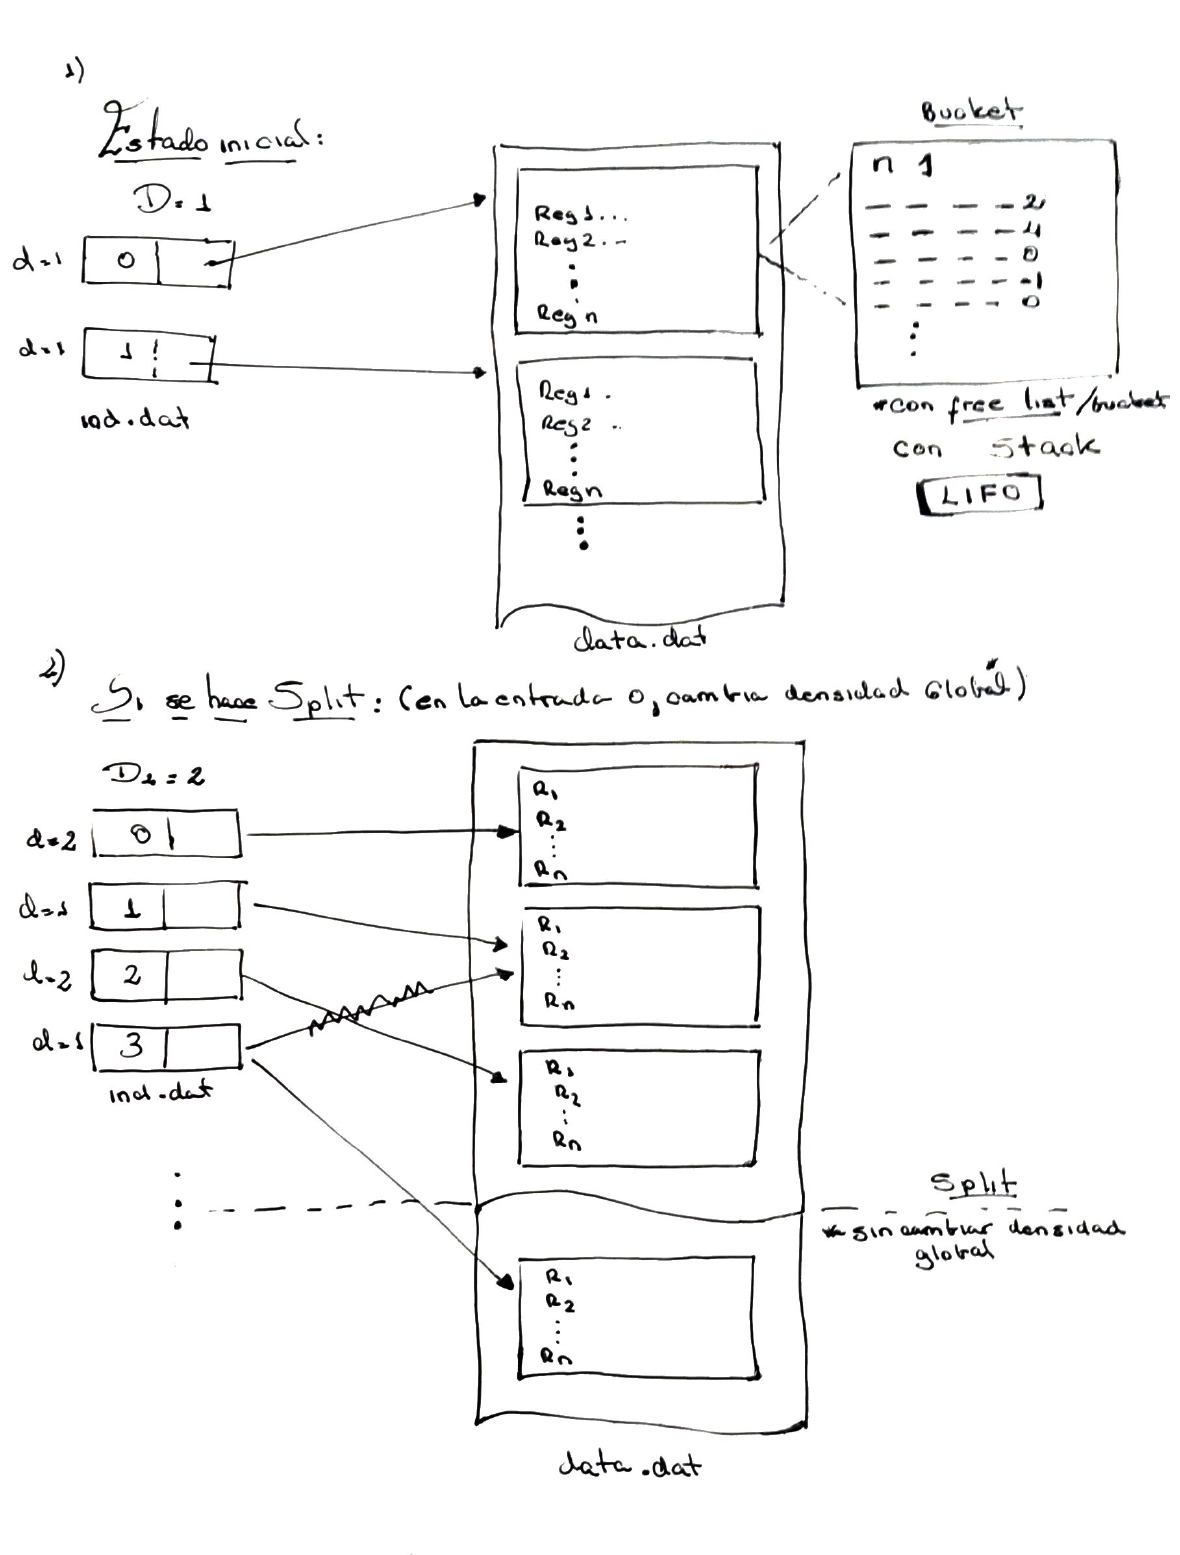 1)
Estado inicial:
D=1
d=1 0
d=1 1
ind.dat
Reg1...
Reg2...
Reg n
Reg1.
Reg2..
Regn
data.dat
Bucket
n 1
- - - - 2
- - - - 4
- - - - 0
- - - - -1
- - - - 0
*con free list/bucket
con Stack
LIFO
2)
Si se hace Split: (en la entrada 0, cambia densidad Global*)
D1=2
d=2 0
d=1 1
d=2 2
d=1 3
ind.dat
R1
R2
Rn
R1
R2
Rn
R1
R2
Rn
Split
* sin cambiar densidad
global
R1
R2
Rn
data.dat